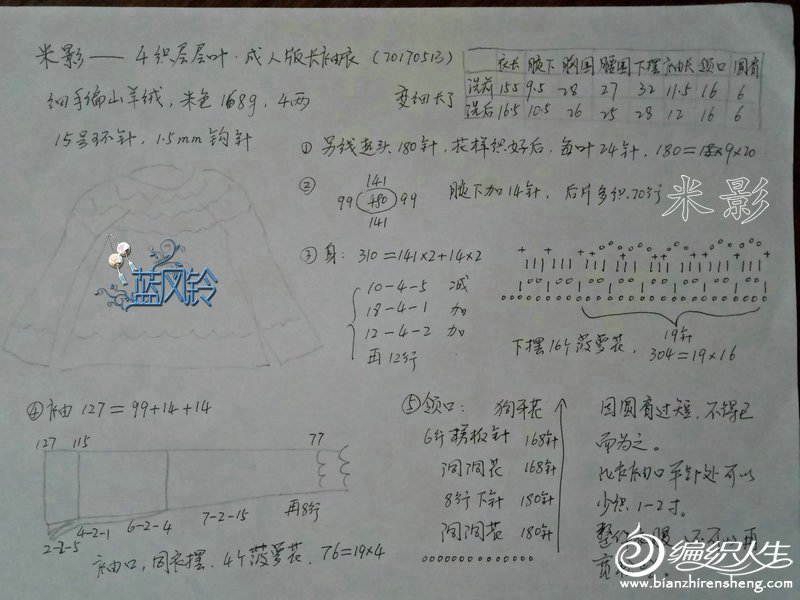 米影——4织层层叶·成人版长袖衣（20170513）
细手编山羊绒，米色168g，4两
变细长了
15号环针，1.5mm钩针
衣长 腋下 胸围 腰围 下摆 袖长 领口 圆肩
洗前 15.5 9.5 28 27 32 11.5 16 6
洗后 16.5 10.5 26 25 28 12 16 6
①另线起头180针，花样织好后，每叶24针，180=9×20
② 141
99 480 99
141
腋下加14针，后片多织20行
米影
③身：310=141×2+14×2
10-4-5 减
18-4-1 加
12-4-2 加
再12行
19针
下摆16个菠萝花，304=19×16
蓝风铃
④袖 127=99+14+14
127 115 77
2-2-5 4-2-1 6-2-4 7-2-15 再8行
袖口，同衣摆，4个菠萝花，76=19×4
⑤领口： 狗牙花
6行搓板针 168针
洞洞花 168针
8行下针 180针
洞洞花 180针
因圆肩过短，不得已
而为之。
比衣袖口平针处可以
少织1-2寸。
编织人生
www.bianzhirensheng.com